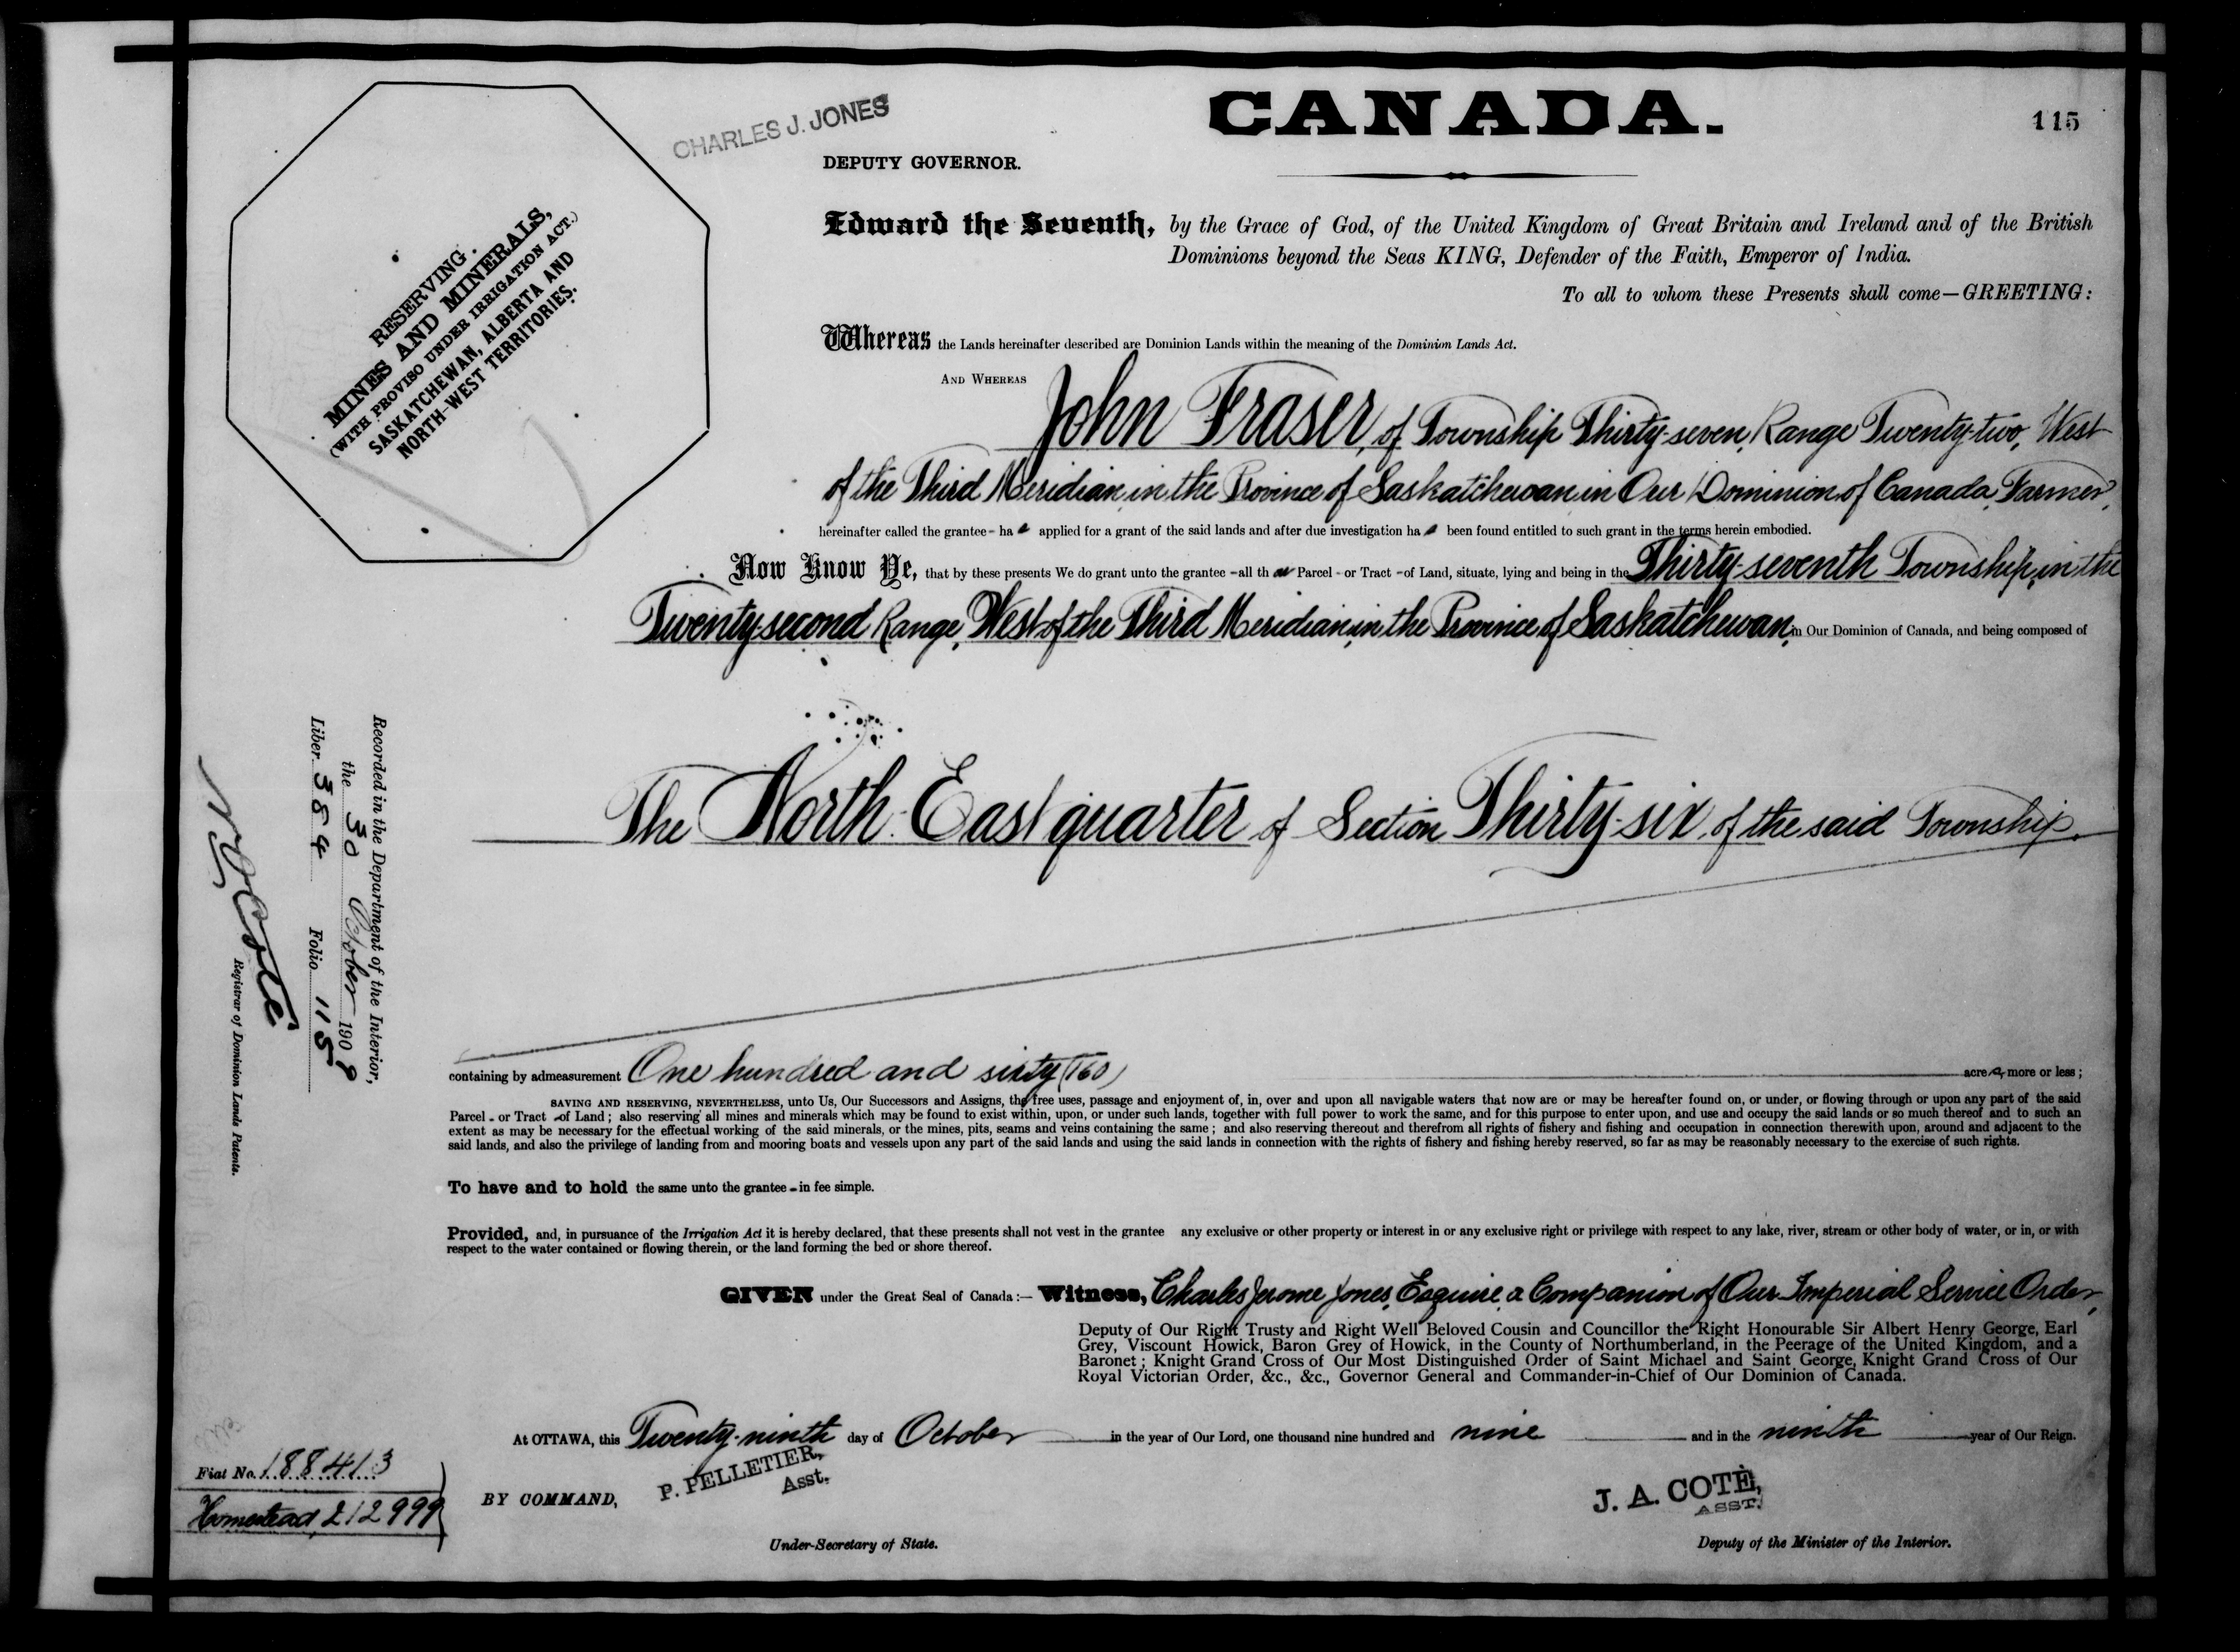 CANADA.
115
CHARLES J. JONES
DEPUTY GOVERNOR.
RESERVING
MINES AND MINERALS,
(WITH PROVISO UNDER IRRIGATION ACT.)
SASKATCHEWAN, ALBERTA AND
NORTH-WEST TERRITORIES.
Edward the Seventh, by the Grace of God, of the United Kingdom of Great Britain and Ireland and of the British
Dominions beyond the Seas KING, Defender of the Faith, Emperor of India.
To all to whom these Presents shall come—GREETING:
Whereas the Lands hereinafter described are Dominion Lands within the meaning of the Dominion Lands Act.
AND WHEREAS John Fraser, of Township Thirty-seven, Range Twenty-two, West
of the Third Meridian, in the Province of Saskatchewan in Our Dominion of Canada, Farmer,
hereinafter called the grantee - has applied for a grant of the said lands and after due investigation has been found entitled to such grant in the terms herein embodied.
Now Know Ye, that by these presents We do grant unto the grantee - all that Parcel - or Tract - of Land, situate, lying and being in the Thirty-seventh Township, in the
Twenty-second Range, West of the Third Meridian, in the Province of Saskatchewan, in Our Dominion of Canada, and being composed of
The North East quarter of Section Thirty-six, of the said Township.
containing by admeasurement One hundred and sixty (160) acres, more or less;
SAVING AND RESERVING, NEVERTHELESS, unto Us, Our Successors and Assigns, the free uses, passage and enjoyment of, in, over and upon all navigable waters that now are or may be hereafter found on, or under, or flowing through or upon any part of the said
Parcel - or Tract - of Land; also reserving all mines and minerals which may be found to exist within, upon, or under such lands, together with full power to work the same, and for this purpose to enter upon, and use and occupy the said lands or so much thereof and to such an
extent as may be necessary for the effectual working of the said minerals, or the mines, pits, seams and veins containing the same; and also reserving thereout and therefrom all rights of fishery and fishing and occupation in connection therewith upon, around and adjacent to the
said lands, and also the privilege of landing from and mooring boats and vessels upon any part of the said lands and using the said lands in connection with the rights of fishery and fishing hereby reserved, so far as may be reasonably necessary to the exercise of such rights.
To have and to hold the same unto the grantee - in fee simple.
Provided, and, in pursuance of the Irrigation Act it is hereby declared, that these presents shall not vest in the grantee any exclusive or other property or interest in or any exclusive right or privilege with respect to any lake, river, stream or other body of water, or in, or with
respect to the water contained or flowing therein, or the land forming the bed or shore thereof.
GIVEN under the Great Seal of Canada:— Witness, Charles Jerome Jones, Esquire, a Companion of Our Imperial Service Order,
Deputy of Our Right Trusty and Right Well Beloved Cousin and Councillor the Right Honourable Sir Albert Henry George, Earl
Grey, Viscount Howick, Baron Grey of Howick, in the County of Northumberland, in the Peerage of the United Kingdom, and a
Baronet; Knight Grand Cross of Our Most Distinguished Order of Saint Michael and Saint George, Knight Grand Cross of Our
Royal Victorian Order, &c., &c., Governor General and Commander-in-Chief of Our Dominion of Canada.
At OTTAWA, this Twenty-ninth day of October in the year of Our Lord, one thousand nine hundred and nine and in the ninth year of Our Reign.
BY COMMAND,
P. PELLETIER,
Asst.
Under-Secretary of State.
J. A. COTÉ,
ASST.
Deputy of the Minister of the Interior.
Recorded in the Department of the Interior,
the 30 October 1909
Liber 384 Folio 115
Coté
Registrar of Dominion Lands Patents.
Fiat No. 188413
Homestead, 212999